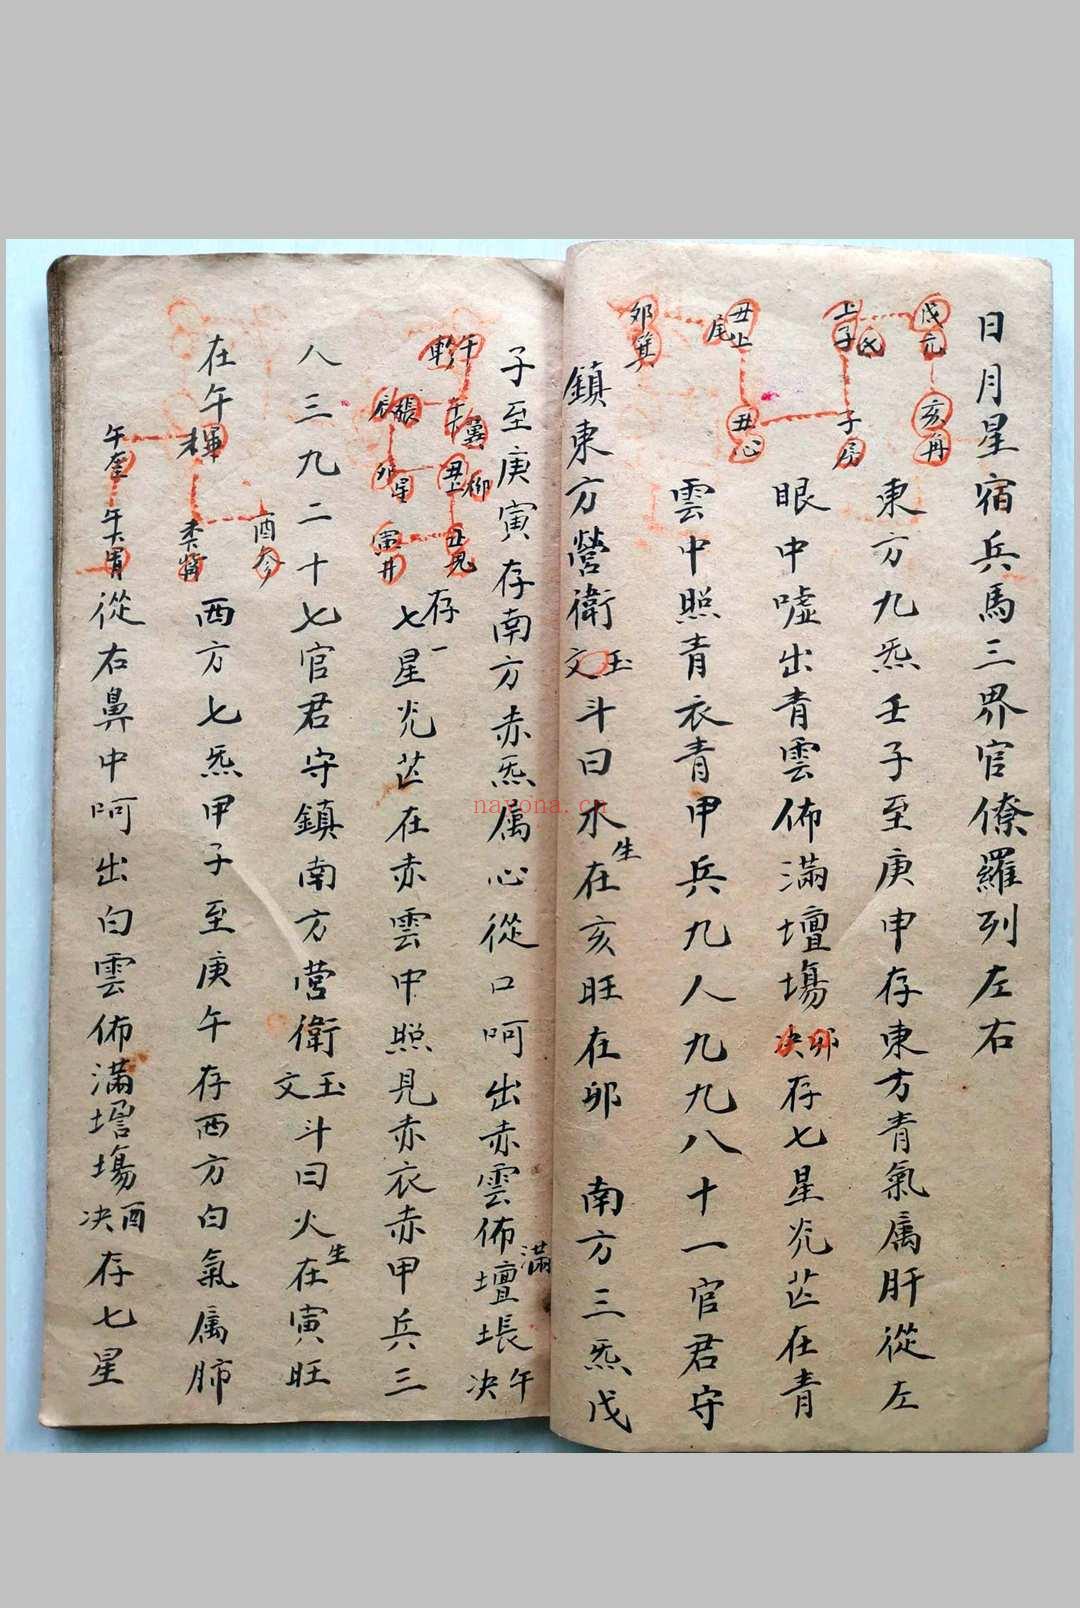 日月星宿兵馬三界官僚羅列左右
戌亢
亥角
東方九炁壬子至庚申存東方青氣属肝從左
上子氐
子房
眼中嘘出青雲佈滿壇場卯决存七星光芒在青
丑上尾
丑心
雲中照青衣青甲兵九人九九八十一官君守
卯箕
鎮東方營衛玉文斗曰水生在亥旺在卯　南方三炁戊
子至庚寅存南方赤炁属心從口呵出赤雲佈滿壇場午决
午軫
午翼
丑上柳
丑鬼
存一七星光芒在赤雲中照見赤衣赤甲兵三
辰張
卯星
寅井
八三九二十七官君守鎮南方营衛玉文斗曰火生在寅旺
酉参
在午
西方七炁甲子至庚午存西方白氣属肺
午奎
午胃
從右鼻中呵出白雲佈滿壇場酉决存七星
nayona.cn